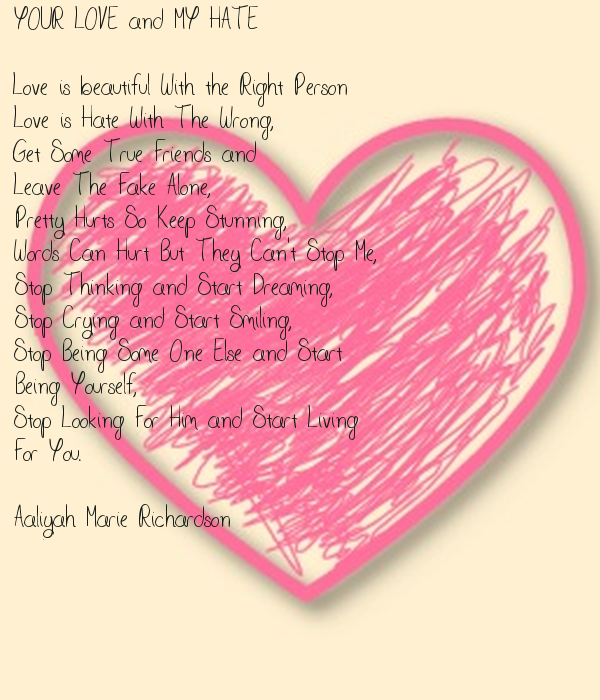 YOUR LOVE and MY HATE
Love is beautiful With the Right Person
Love is Hate With The Wrong,
Get Some True Friends and
Leave The Fake Alone,
Pretty Hurts So Keep Stunning,
Words Can Hurt But They Can't Stop Me,
Stop Thinking and Start Dreaming,
Stop Crying and Start Smiling,
Stop Being Some One Else and Start
Being Yourself,
Stop Looking For Him and Start Living
For You.
Aaliyah Marie Richardson